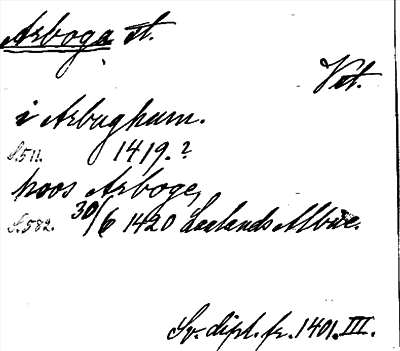 Arboga st.
Vst.
i Arboghum.
S. 511. 1419.?
hoos Arboge,
S. 582. 30/6 1420 Laalands
Sv. dipl. fr. 1401. III.